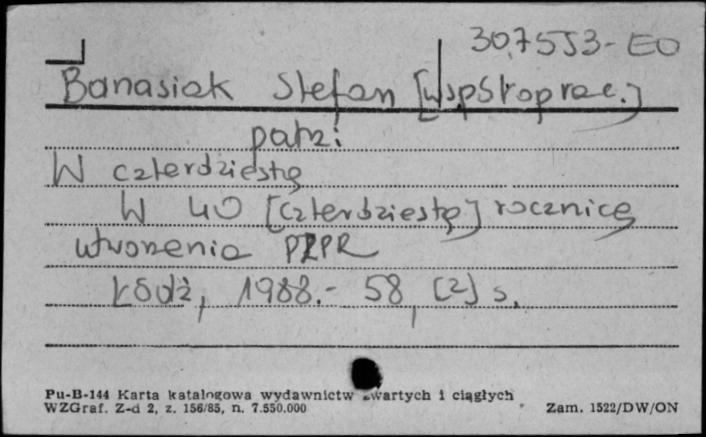 307553-EO
Banasiak Stefan [Współoprac.]
patrz:
W czterdziestą
W 40 [czterdziestą] rocznicę
utworzenia PZPR
Łódź, 1988.- 58, [2] s.
Pu-B-144 Karta katalogowa wydawnictw zwartych i ciągłych
WZGraf. Z-d 2, z. 156/85, n. 7.550.000 Zam. 1522/DW/ON